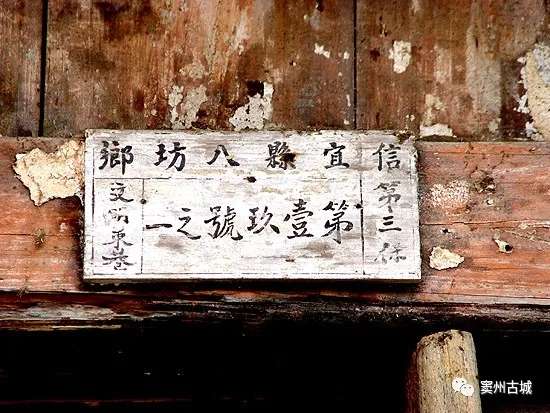 信宜縣八坊鄉
第三保
第壹玖號之一
文明東巷
窦州古城